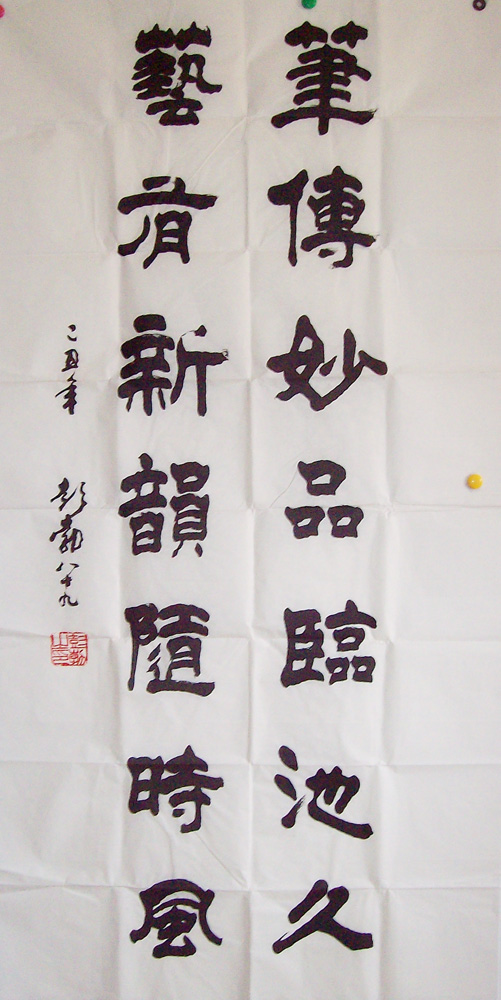 筆傳妙品臨池久
藝有新韻隨時風
己丑年 彭勃八十九